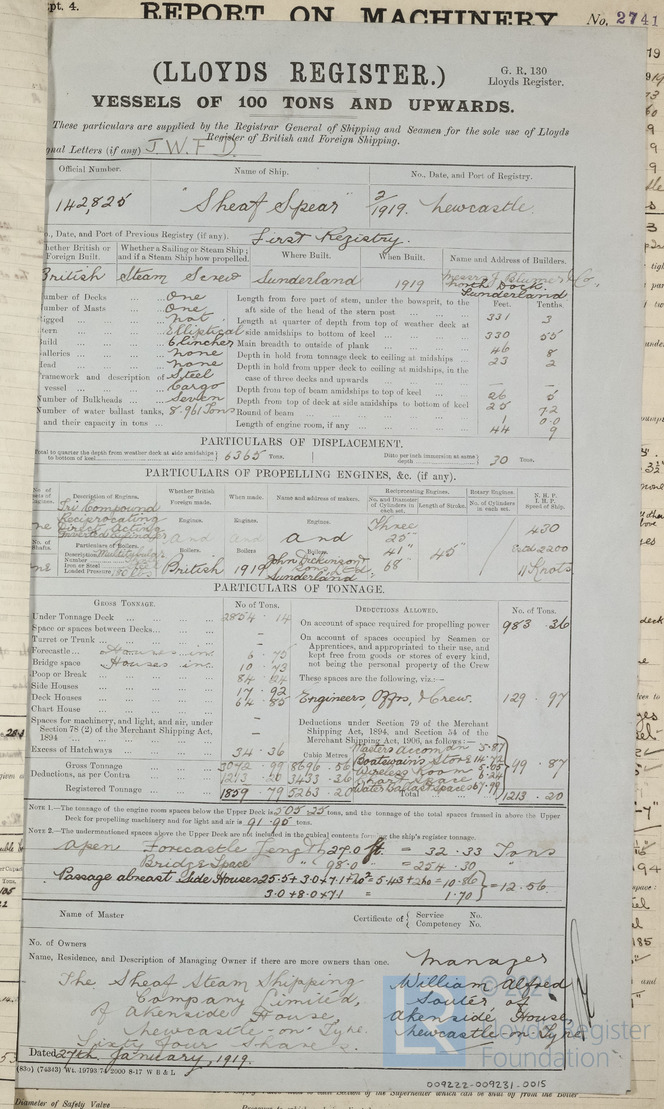 pt. 4.
REPORT ON MACHINERY
No. 2741
(LLOYDS REGISTER.)
G. R. 130
Lloyds Register.
VESSELS OF 100 TONS AND UPWARDS.
These particulars are supplied by the Registrar General of Shipping and Seamen for the sole use of Lloyds
Register of British and Foreign Shipping.
gnal Letters (if any) J.W.F.D.
Official Number. Name of Ship. No., Date, and Port of Registry.
142,825 "Sheaf Spear" 2/1919. Newcastle.
o., Date, and Port of Previous Registry (if any). First Registry.
hether British or Foreign Built. Whether a Sailing or Steam Ship; and if a Steam Ship how propelled. Where Built. When Built. Name and Address of Builders.
British Steam Screw Sunderland 1919 Messrs J. Blumer & Co, North Dock. Sunderland
umber of Decks One
umber of Masts One
igged not
tern Elliptical
uild Clincher
alleries none
ead none
ramework and description of vessel Steel Cargo
umber of Bulkheads Seven
umber of water ballast tanks, and their capacity in tons 8-961 Tons
Feet. Tenths.
Length from fore part of stem, under the bowsprit, to the aft side of the head of the stern post 331 3
Length at quarter of depth from top of weather deck at side amidships to bottom of keel 330 55
Main breadth to outside of plank 46 8
Depth in hold from tonnage deck to ceiling at midships 23 2
Depth in hold from upper deck to ceiling at midships, in the case of three decks and upwards — —
Depth from top of beam amidships to top of keel 26 5
Depth from top of deck at side amidships to bottom of keel 25 72
Round of beam 1 00
Length of engine room, if any 44 9
PARTICULARS OF DISPLACEMENT.
Total to quarter the depth from weather deck at side amidships to bottom of keel 6365 Tons.
Ditto per inch immersion at same depth 30 Tons.
PARTICULARS OF PROPELLING ENGINES, &c. (if any).
No. of Sets of Engines. Description of Engines. Whether British or Foreign made. When made. Name and address of makers. Reciprocating Engines. Rotary Engines. N. H. P. I. H. P. Speed of Ship.
No. and Diameter of Cylinders in each set. Length of Stroke. No. of Cylinders in each set.
Tri Compound
Reciprocating
Direct Acting
Inverted Cylinder
Engines. Engines. Engines.
and and and
No. of Shafts. Particulars of Boilers.
Description Multitubular
Number
Iron or Steel Steel
Loaded Pressure
Boilers. Boilers Boilers.
British 1919 John Dickinson & Sons Ltd Sunderland
Three
25"
41" 45"
68"
430
2200
11 Knots
PARTICULARS OF TONNAGE.
GROSS TONNAGE. No. of Tons. DEDUCTIONS ALLOWED. No. of Tons.
Under Tonnage Deck 2854 . 14
Space or spaces between Decks —
Turret or Trunk —
Forecastle Houses in 6 . 75
Bridge space Houses in 10 . 73
Poop or Break 84 . 24
Side Houses 17 . 92
Deck Houses 64 . 85
Chart House
Spaces for machinery, and light, and air, under Section 78 (2) of the Merchant Shipping Act, 1894 —
Excess of Hatchways 34 . 36
Cubic Metres
Gross Tonnage 3072 . 99 8696 . 56
Deductions, as per Contra 1213 . 20 3433 . 36
Registered Tonnage 1859 . 79 5263 20
On account of space required for propelling power 983 . 36
On account of spaces occupied by Seamen or Apprentices, and appropriated to their use, and kept free from goods or stores of every kind, not being the personal property of the Crew
These spaces are the following, viz.:—
Engineers, Offrs, & Crew. 129 . 97
Deductions under Section 79 of the Merchant Shipping Act, 1894, and Section 54 of the Merchant Shipping Act, 1906, as follows:—
Masters Accomdn 5.87
Boatswain's Store 14.72
Wireless Room 5.05
Chart Space 6.24
Water Ballast space 67.99
99 . 87
Total 1213 . 20
NOTE 1.—The tonnage of the engine room spaces below the Upper Deck is 305.25 tons, and the tonnage of the total spaces framed in above the Upper
Deck for propelling machinery and for light and air is 91.95 tons.
NOTE 2.—The undermentioned spaces above the Upper Deck are not included in the cubical contents forming the ship's register tonnage.
Open Forecastle Length 27.0 ft. = 32.33 Tons
Bridge Space " 98.0 = 254.30 "
Passage abreast Side Houses 25.5+3.0+7.1
3.0+8.0+7.1 = 1.70 } = 12.56
Name of Master
Certificate of { Service No.
Competency No.
No. of Owners
Name, Residence, and Description of Managing Owner if there are more owners than one.
Manager
The Sheaf Steam Shipping
Company Limited,
of Akenside House,
Newcastle-on-Tyne.
Sixty four Shares.
William Alfred
Souter of
Akenside House,
Newcastle on Tyne
Dated 27th January, 1919.
(83o) (74343) Wt. 19793/74 2000 8-17 W B & L
© 2021
Lloyd's Register
Foundation
009222-009231-0015
Diameter of Safety Valve